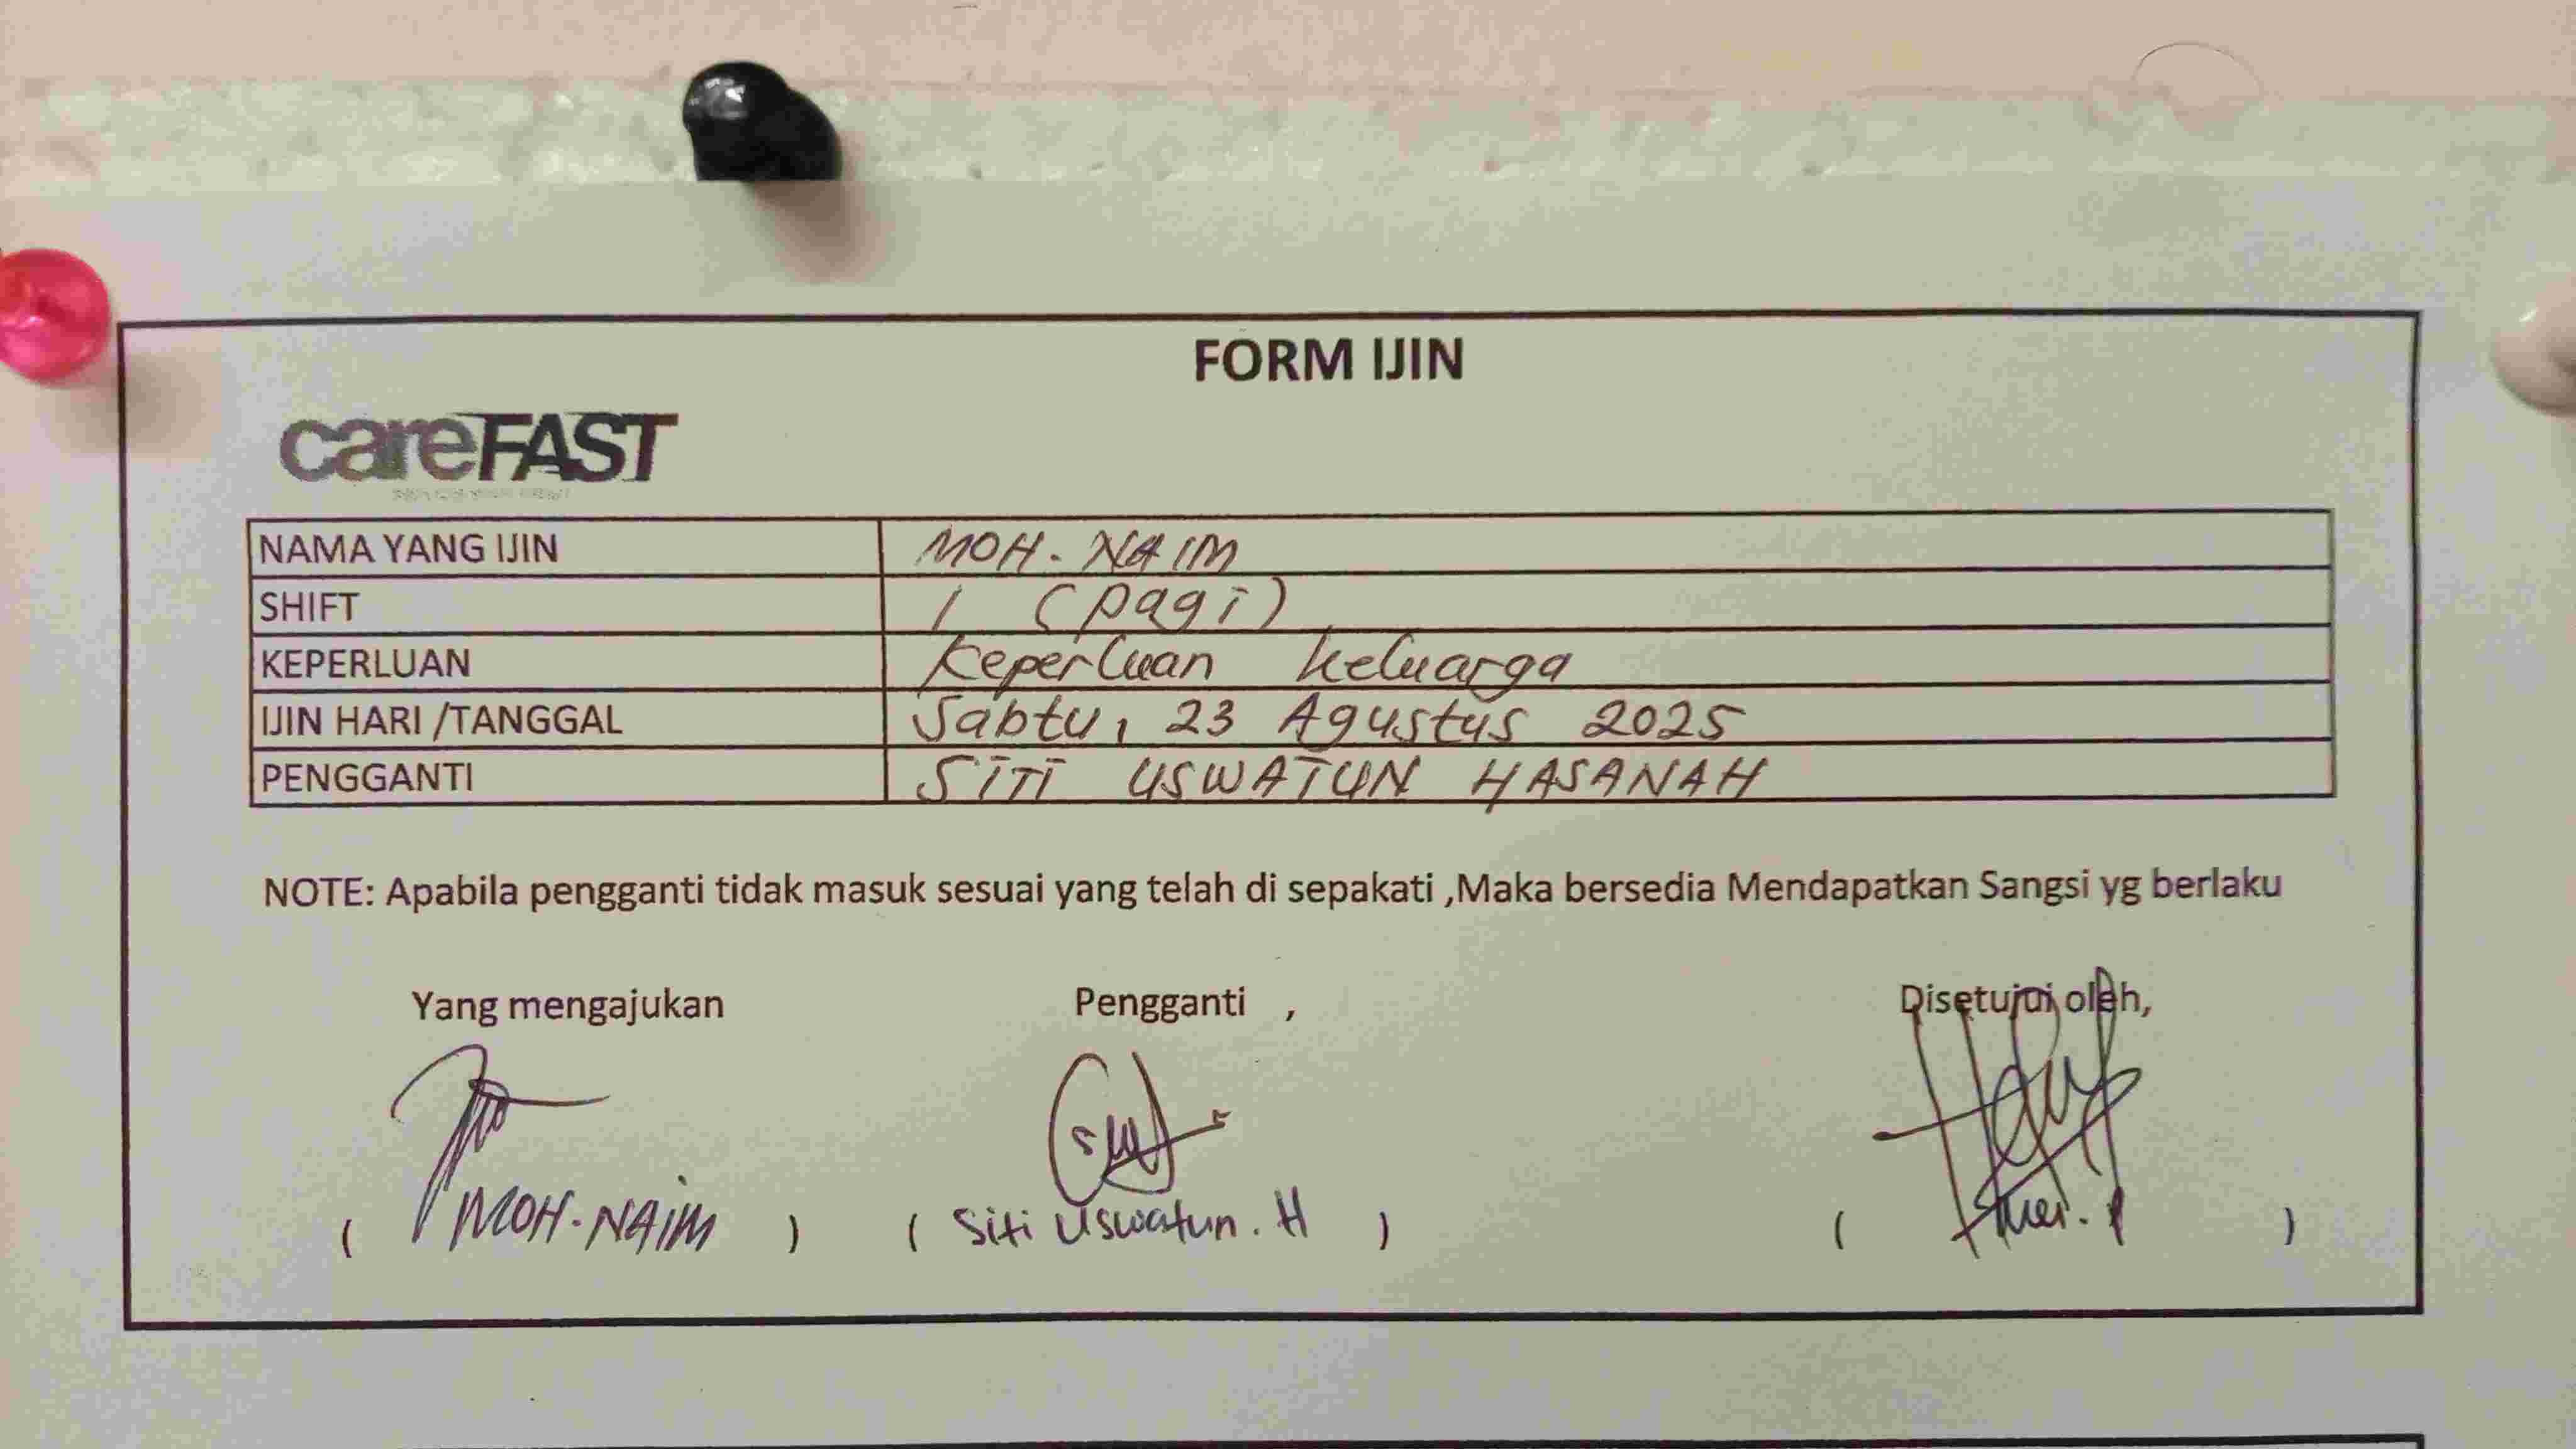 FORM IJIN
careFAST
NAMA YANG IJIN MOH. NAIM
SHIFT 1 (pagi)
KEPERLUAN Keperluan keluarga
IJIN HARI /TANGGAL Sabtu, 23 Agustus 2025
PENGGANTI SITI USWATUN HASANAH
NOTE: Apabila pengganti tidak masuk sesuai yang telah di sepakati ,Maka bersedia Mendapatkan Sangsi yg berlaku
Yang mengajukan Pengganti , Disetujui oleh,
( MOH. NAIM ) ( Siti Uswatun. H ) ( )